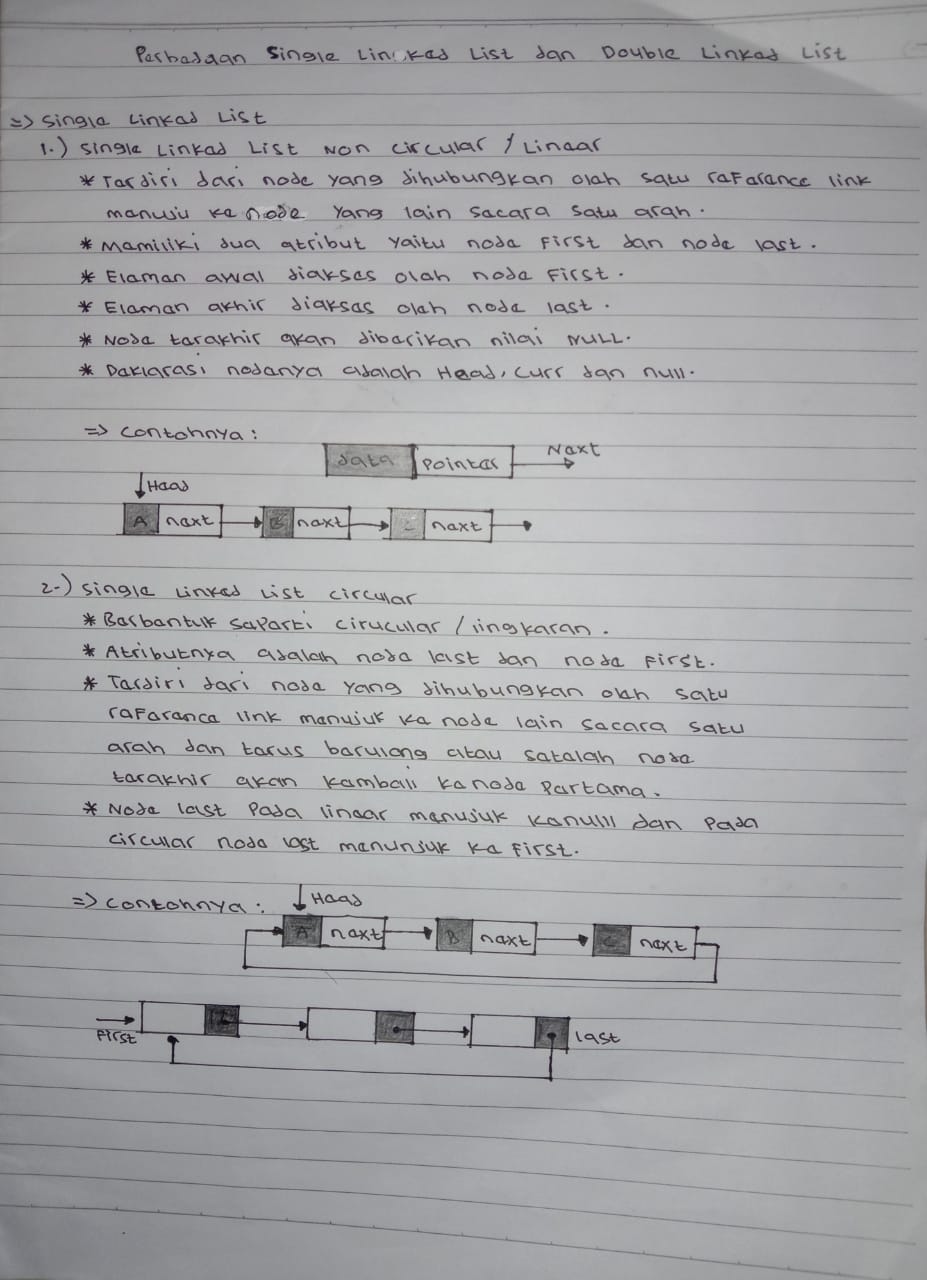 Perbedaan Single Linked List dan Double Linked List
=> Single Linked List
1.) Single Linked List Non Circular / Linear
* Terdiri dari node yang dihubungkan oleh satu reference link
menuju ke node yang lain secara satu arah.
* Memiliki dua atribut yaitu node First dan node last.
* Elemen awal diakses oleh node First.
* Elemen akhir diakses oleh node last.
* Node terakhir akan diberikan nilai NULL.
* Deklarasi nodenya adalah Head, Curr dan null.
=> Contohnya:
data Pointer Next
Head
A next B next C next
2.) Single Linked List circular
* Berbentuk seperti cirucular / lingkaran.
* Atributnya adalah node last dan node First.
* Terdiri dari node yang dihubungkan oleh satu
reference link menujuk ke node lain secara satu
arah dan terus berulang atau setelah node
terakhir akan kembali ke node Pertama.
* Node last Pada linear menujuk kenulll dan Pada
circular node last menunjuk ke First.
=> Contohnya:
Head
A next B next C next
First last